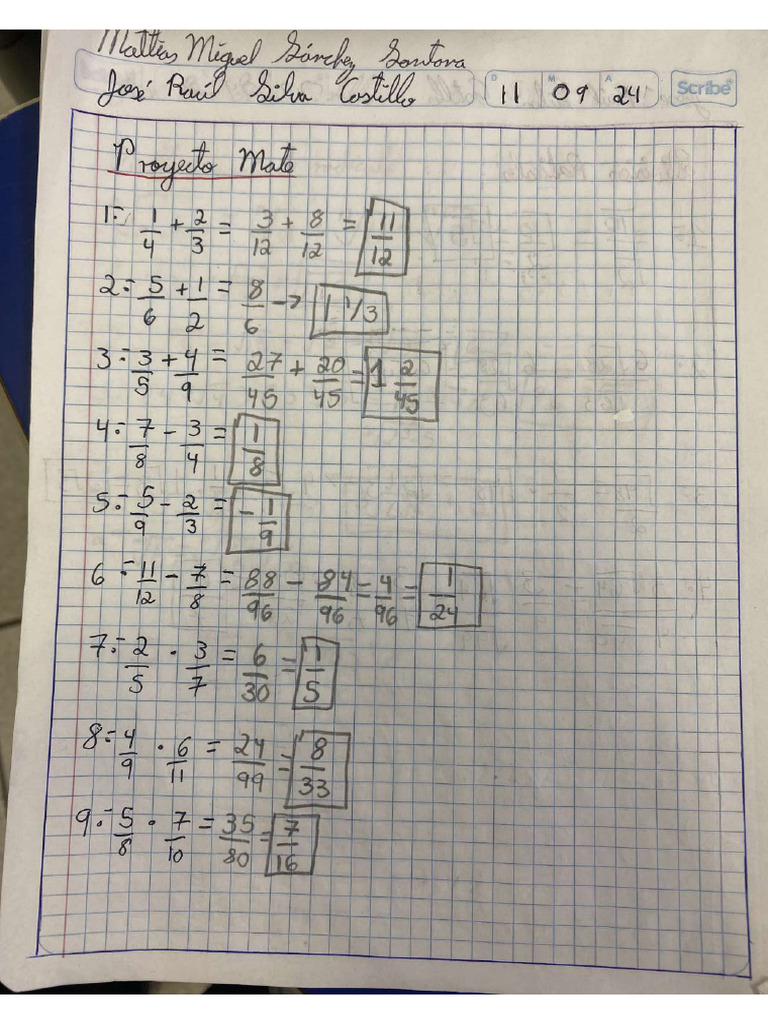 Mattias Miguel Sánchez Santana
José Raúl Silva Castillo D 11 M 09 A 24 Scribe
Proyecto Mate
1.- 1/4 + 2/3 = 3/12 + 8/12 = 11/12
2.- 5/6 + 1/2 = 8/6 → 1 1/3
3.- 3/5 + 4/9 = 27/45 + 20/45 = 1 2/45
4.- 7/8 - 3/4 = 1/8
5.- 5/9 - 2/3 = -1/9
6.- 11/12 - 7/8 = 88/96 - 84/96 = 4/96 = 1/24
7.- 2/5 · 3/7 = 6/30 = 1/5
8.- 4/9 · 6/11 = 24/99 = 8/33
9.- 5/8 · 7/10 = 35/80 = 7/16